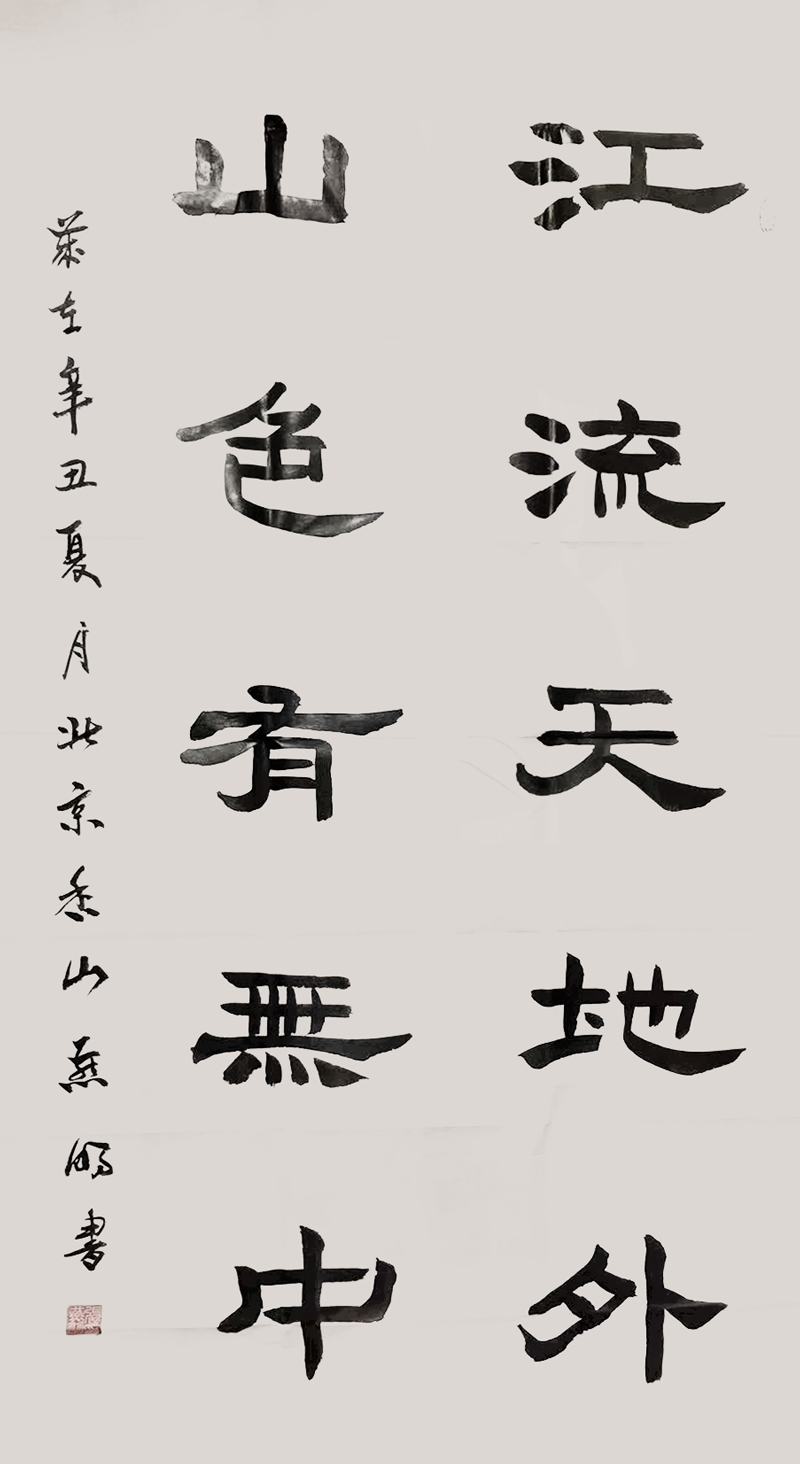 江流天地外
山色有無中
歲在辛丑夏月北京香山燕鳴書